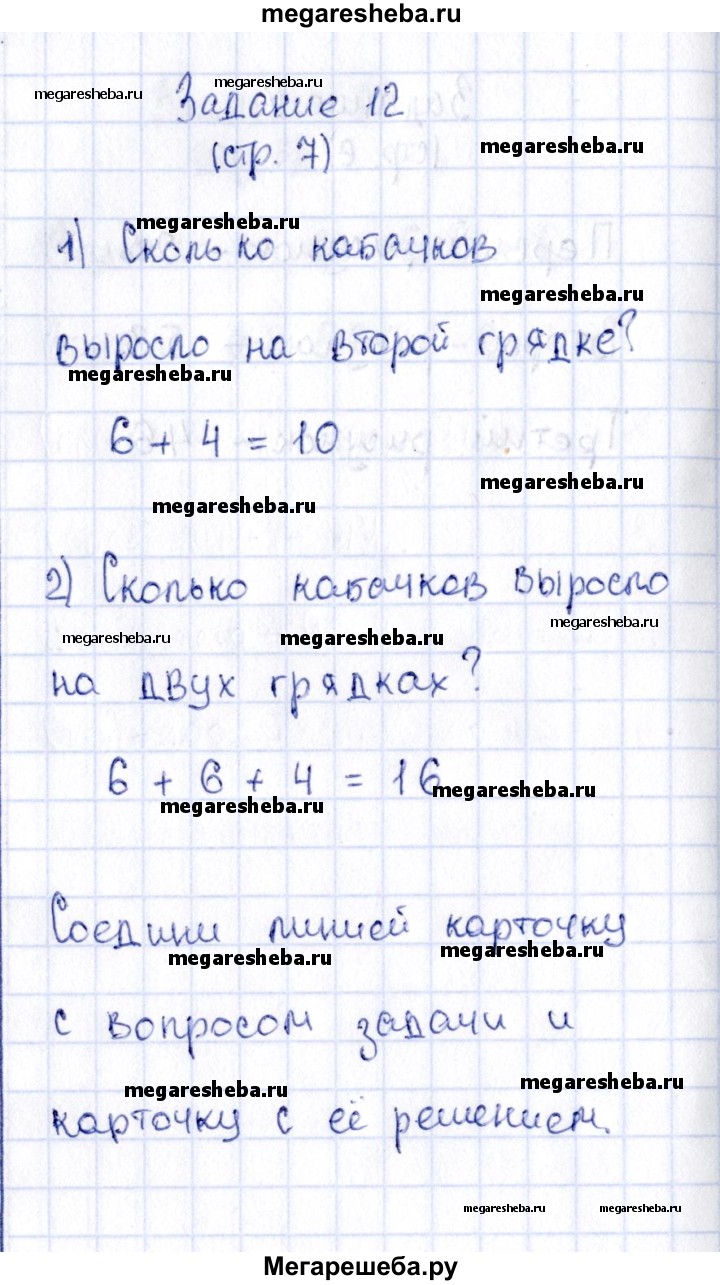 megaresheba.ru
megaresheba.ru
megaresheba.ru
Задание 12
megaresheba.ru
(стр. 7)
megaresheba.ru
1) Сколько кабачков
megaresheba.ru
выросло на второй грядке?
megaresheba.ru
6 + 4 = 10
megaresheba.ru
megaresheba.ru
2) Сколько кабачков выросло
megaresheba.ru
megaresheba.ru
megaresheba.ru
на двух грядках?
6 + 6 + 4 = 16
megaresheba.ru
megaresheba.ru
Соедини линией карточку
megaresheba.ru
megaresheba.ru
с вопросом задачи и
megaresheba.ru
megaresheba.ru
карточку с её решением.
megaresheba.ru
megaresheba.ru
Мегарешеба.ру